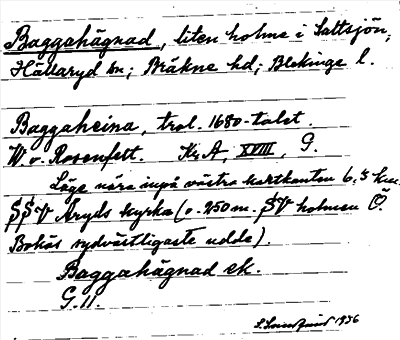 Baggahägnad, liten holme i Saltsjön,
Hällaryd sn; Bräkne hd; Blekinge l.
Baggaheina, trol. 1680-talet.
W v. Rosenfelt. Kr.A, XVIII, G.
Läge nära inpå västra kartkanten 6,5 km.
SSV Åryds kyrka (o. 250 m. SV holmen Ö.
Bokös sydvästligaste udde).
Baggahägnad ek.
G. 11.
1936